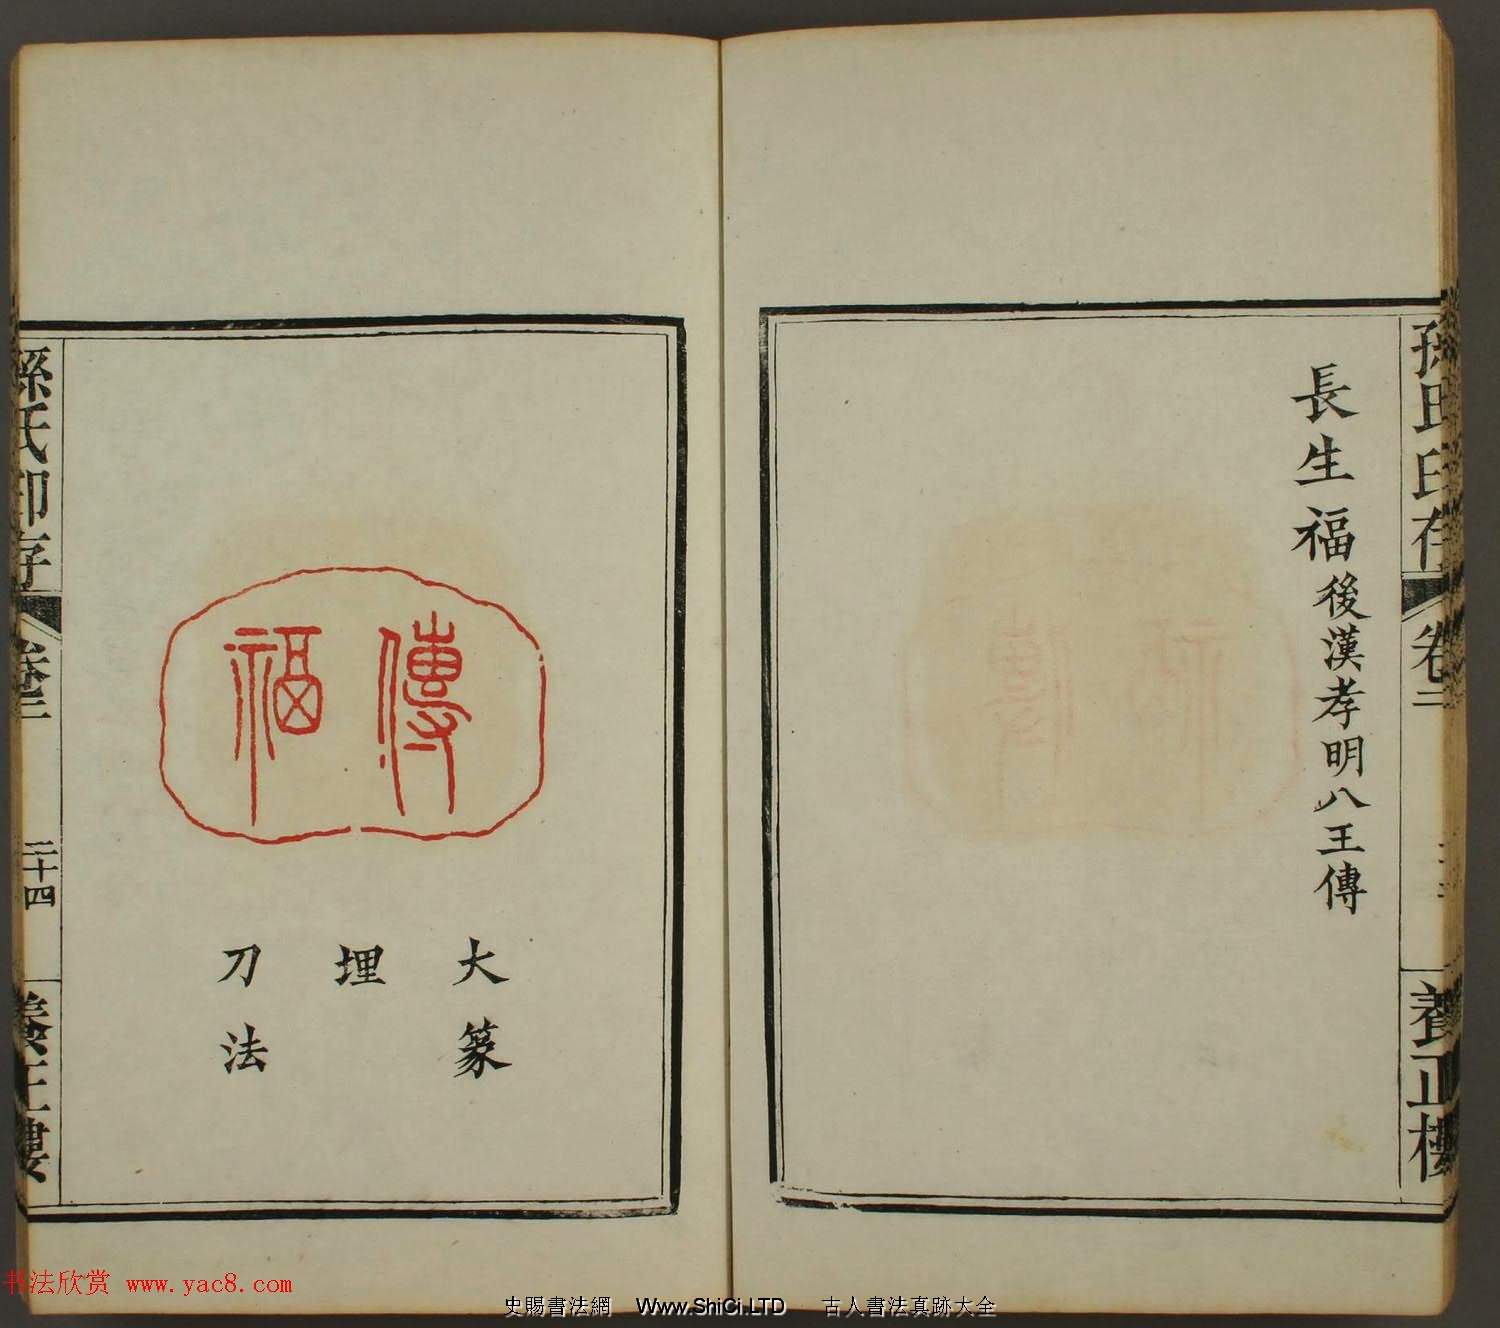 孫氏印存
卷三
養正樓
長生福後漢孝明八王傳
傳福
大篆
埋
刀法
孫氏印存
卷三
二十四
養正樓
书法欣赏 www.yac8.com
史賜書法網 Www.ShiCi.LTD 古人書法真跡大全